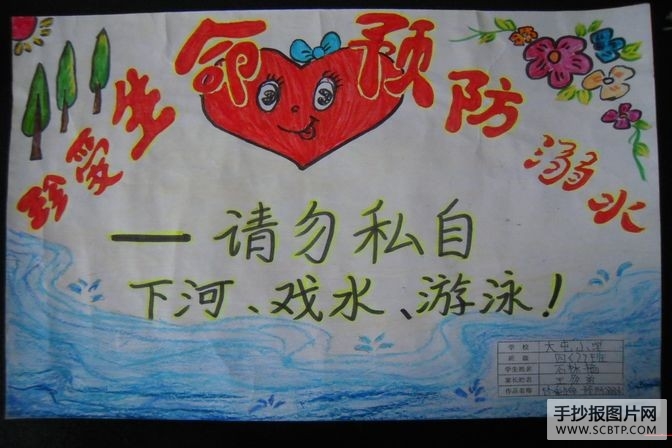 珍爱生命预防溺水
—请勿私自
下河、戏水、游泳!
学校 大屯小学
班级
学生姓名
家长姓名
作品名称
手抄报图片网
WWW.SCBTP.COM